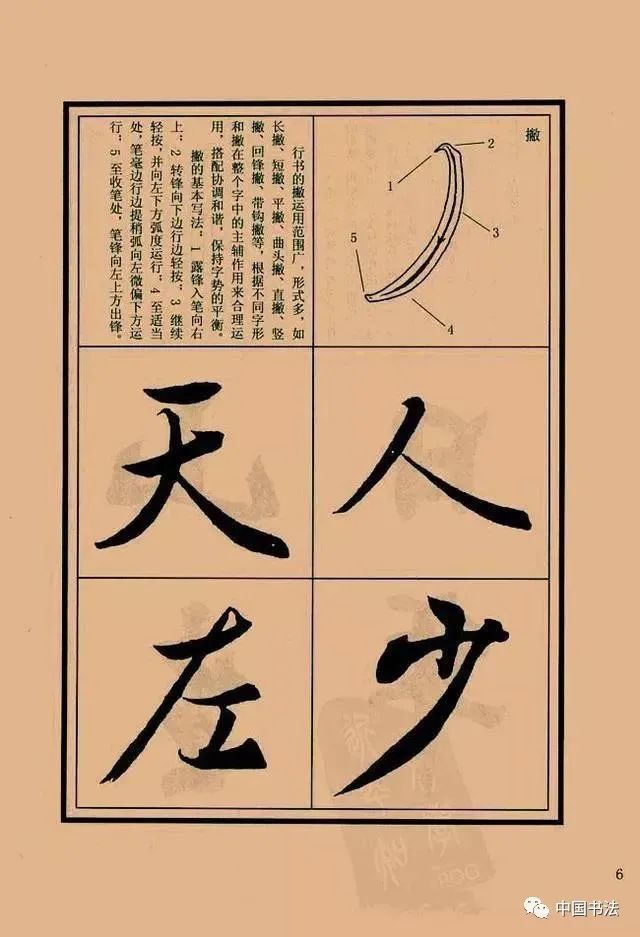 撇
2
1
3
5
4
行书的撇运用范围广，形式多，如
长撇、短撇、平撇、曲头撇、直撇、竖
撇、回锋撇、带钩撇等，根据不同字形
和撇在整个字中的主辅作用来合理运
用，搭配协调和谐，保持字势的平衡。
撇的基本写法：1 露锋入笔向右
上；2 转锋向下边行边轻按；3 继续
轻按，并向左下方弧度运行；4 至适当
处，笔毫边行边提稍弧向左微偏下方运
行；5 至收笔处，笔锋向左上方出锋。
人
天
少
左
6
中国书法